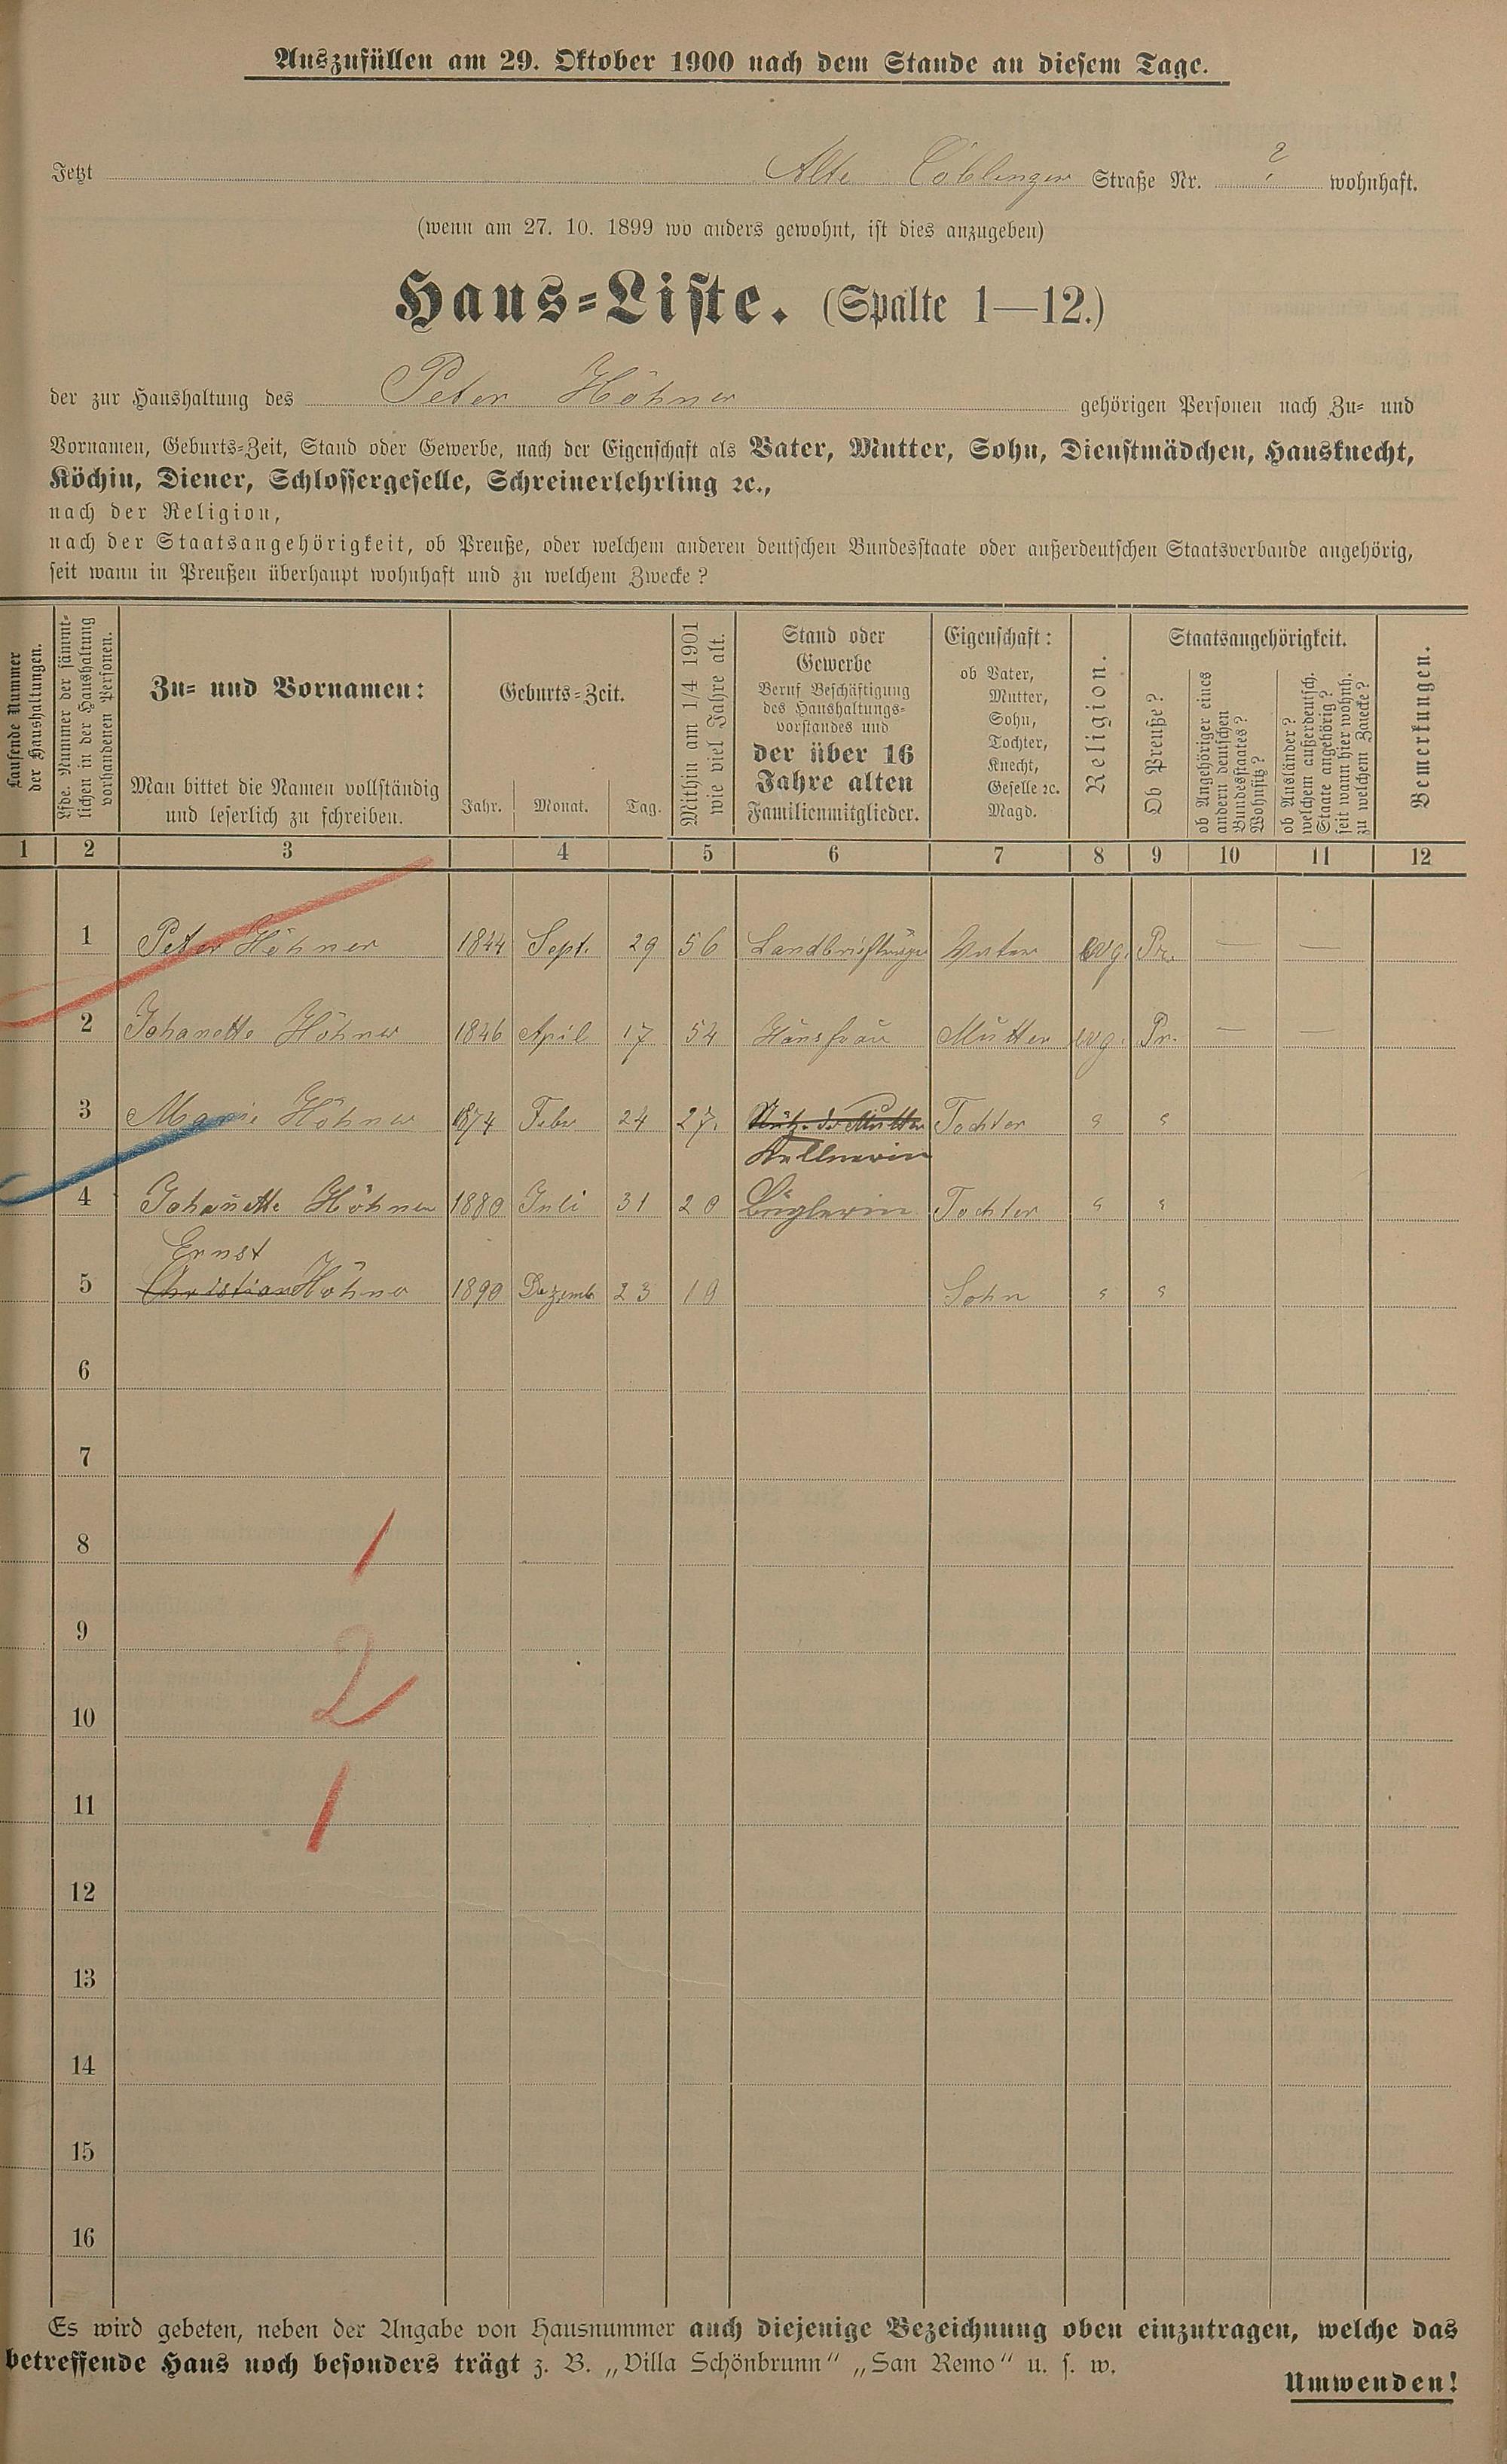 Auszufüllen am 29. Oktober 1900 nach dem Stande an diesem Tage.
Jetzt Alte Coblenzer Straße Nr. ? wohnhaft.
(wenn am 27. 10. 1899 wo anders gewohnt, ist dies anzugeben)
Haus-Liste. (Spalte 1—12.)
der zur Haushaltung des Peter Höhner gehörigen Personen nach Zu- und
Vornamen, Geburts-Zeit, Stand oder Gewerbe, nach der Eigenschaft als Vater, Mutter, Sohn, Dienstmädchen, Hausknecht,
Köchin, Diener, Schlossergeselle, Schreinerlehrling ꝛc.,
nach der Religion,
nach der Staatsangehörigkeit, ob Preuße, oder welchem anderen deutschen Bundesstaate oder außerdeutschen Staatsverbande angehörig,
seit wann in Preußen überhaupt wohnhaft und zu welchem Zwecke?
Laufende Nummer
der Haushaltungen.
Lfde. Nummer der sämmt-
lichen in der Haushaltung
vorhandenen Personen.
Zu- und Vornamen:
Man bittet die Namen vollständig
und leserlich zu schreiben.
Geburts-Zeit.
Jahr. Monat. Tag.
Mithin am 1/4 1901
wie viel Jahre alt.
Stand oder
Gewerbe
Beruf Beschäftigung
des Haushaltungs-
vorstandes und
der über 16
Jahre alten
Familienmitglieder.
Eigenschaft:
ob Vater,
Mutter,
Sohn,
Tochter,
Knecht,
Geselle ꝛc.
Magd.
Religion.
Staatsangehörigkeit.
Ob Preuße?
ob Angehöriger eines
andern deutschen
Bundesstaates?
Wohnsitz?
ob Ausländer?
welchem außerdeutsch.
Staate angehörig?
seit wann hier wohnh.
zu welchem Zwecke?
Bemerkungen.
1 2 3 4 5 6 7 8 9 10 11 12
1 Peter Höhner 1844 Sept. 29 56 Landbriefträger Vater evg. Pr. — —
2 Johanette Höhner 1846 April 17 54 Hausfrau Mutter evg. Pr. — —
3 Marie Höhner 1874 Febr 24 27. Stütz. der Mutter Tochter " "
Kellnerin
4 Johanette Höhner 1880 Juli 31 20 Büglerin Tochter " "
Ernst
5 Christian Höhner 1890 Dezemb 23 10 Sohn " "
6
7
8 1
9
10 2
11 1
12
13
14
15
16
Es wird gebeten, neben der Angabe von Hausnummer auch diejenige Bezeichnung oben einzutragen, welche das
betreffende Haus noch besonders trägt z. B. „Villa Schönbrunn" „San Remo" u. s. w.
Umwenden!